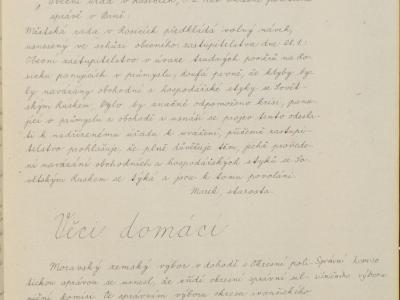 Obecní rada v Rosicích,
správě v Brně:
Městská rada v Rosicích předkládá volný návrh,
usnesený ve schůzi obecního zastupitelstva dne 28./1.:
Obecní zastupitelstvo v úvaze tradných poměrů na Ro-
sicku panujících v průmyslu, doufá pevně, že kdyby by-
ly navázány obchodní a hospodářské styky se Sovět-
ským Ruskem bylo by značně odpomoženo krisi, panu-
jící v průmyslu a obchodě a usnáší se projev tento odesla-
ti k nadřízenému úřadu k uvážení, přičemž zastupi-
telstvo prohlašuje, že plně důvěřuje těm, jichž provede-
ní navázání obchodních a hospodářských styků se So-
větským Ruskem se týká a jsou k tomu povoláni.
Marek, starosta.
Věci domácí
Moravský zemský výbor v dohodě s Okresní poli- Správní komise
tickou správou se usnesl, že zřídí okresní správní sil- silničního výboru
niční komisi se správním výborem okresu ivančického